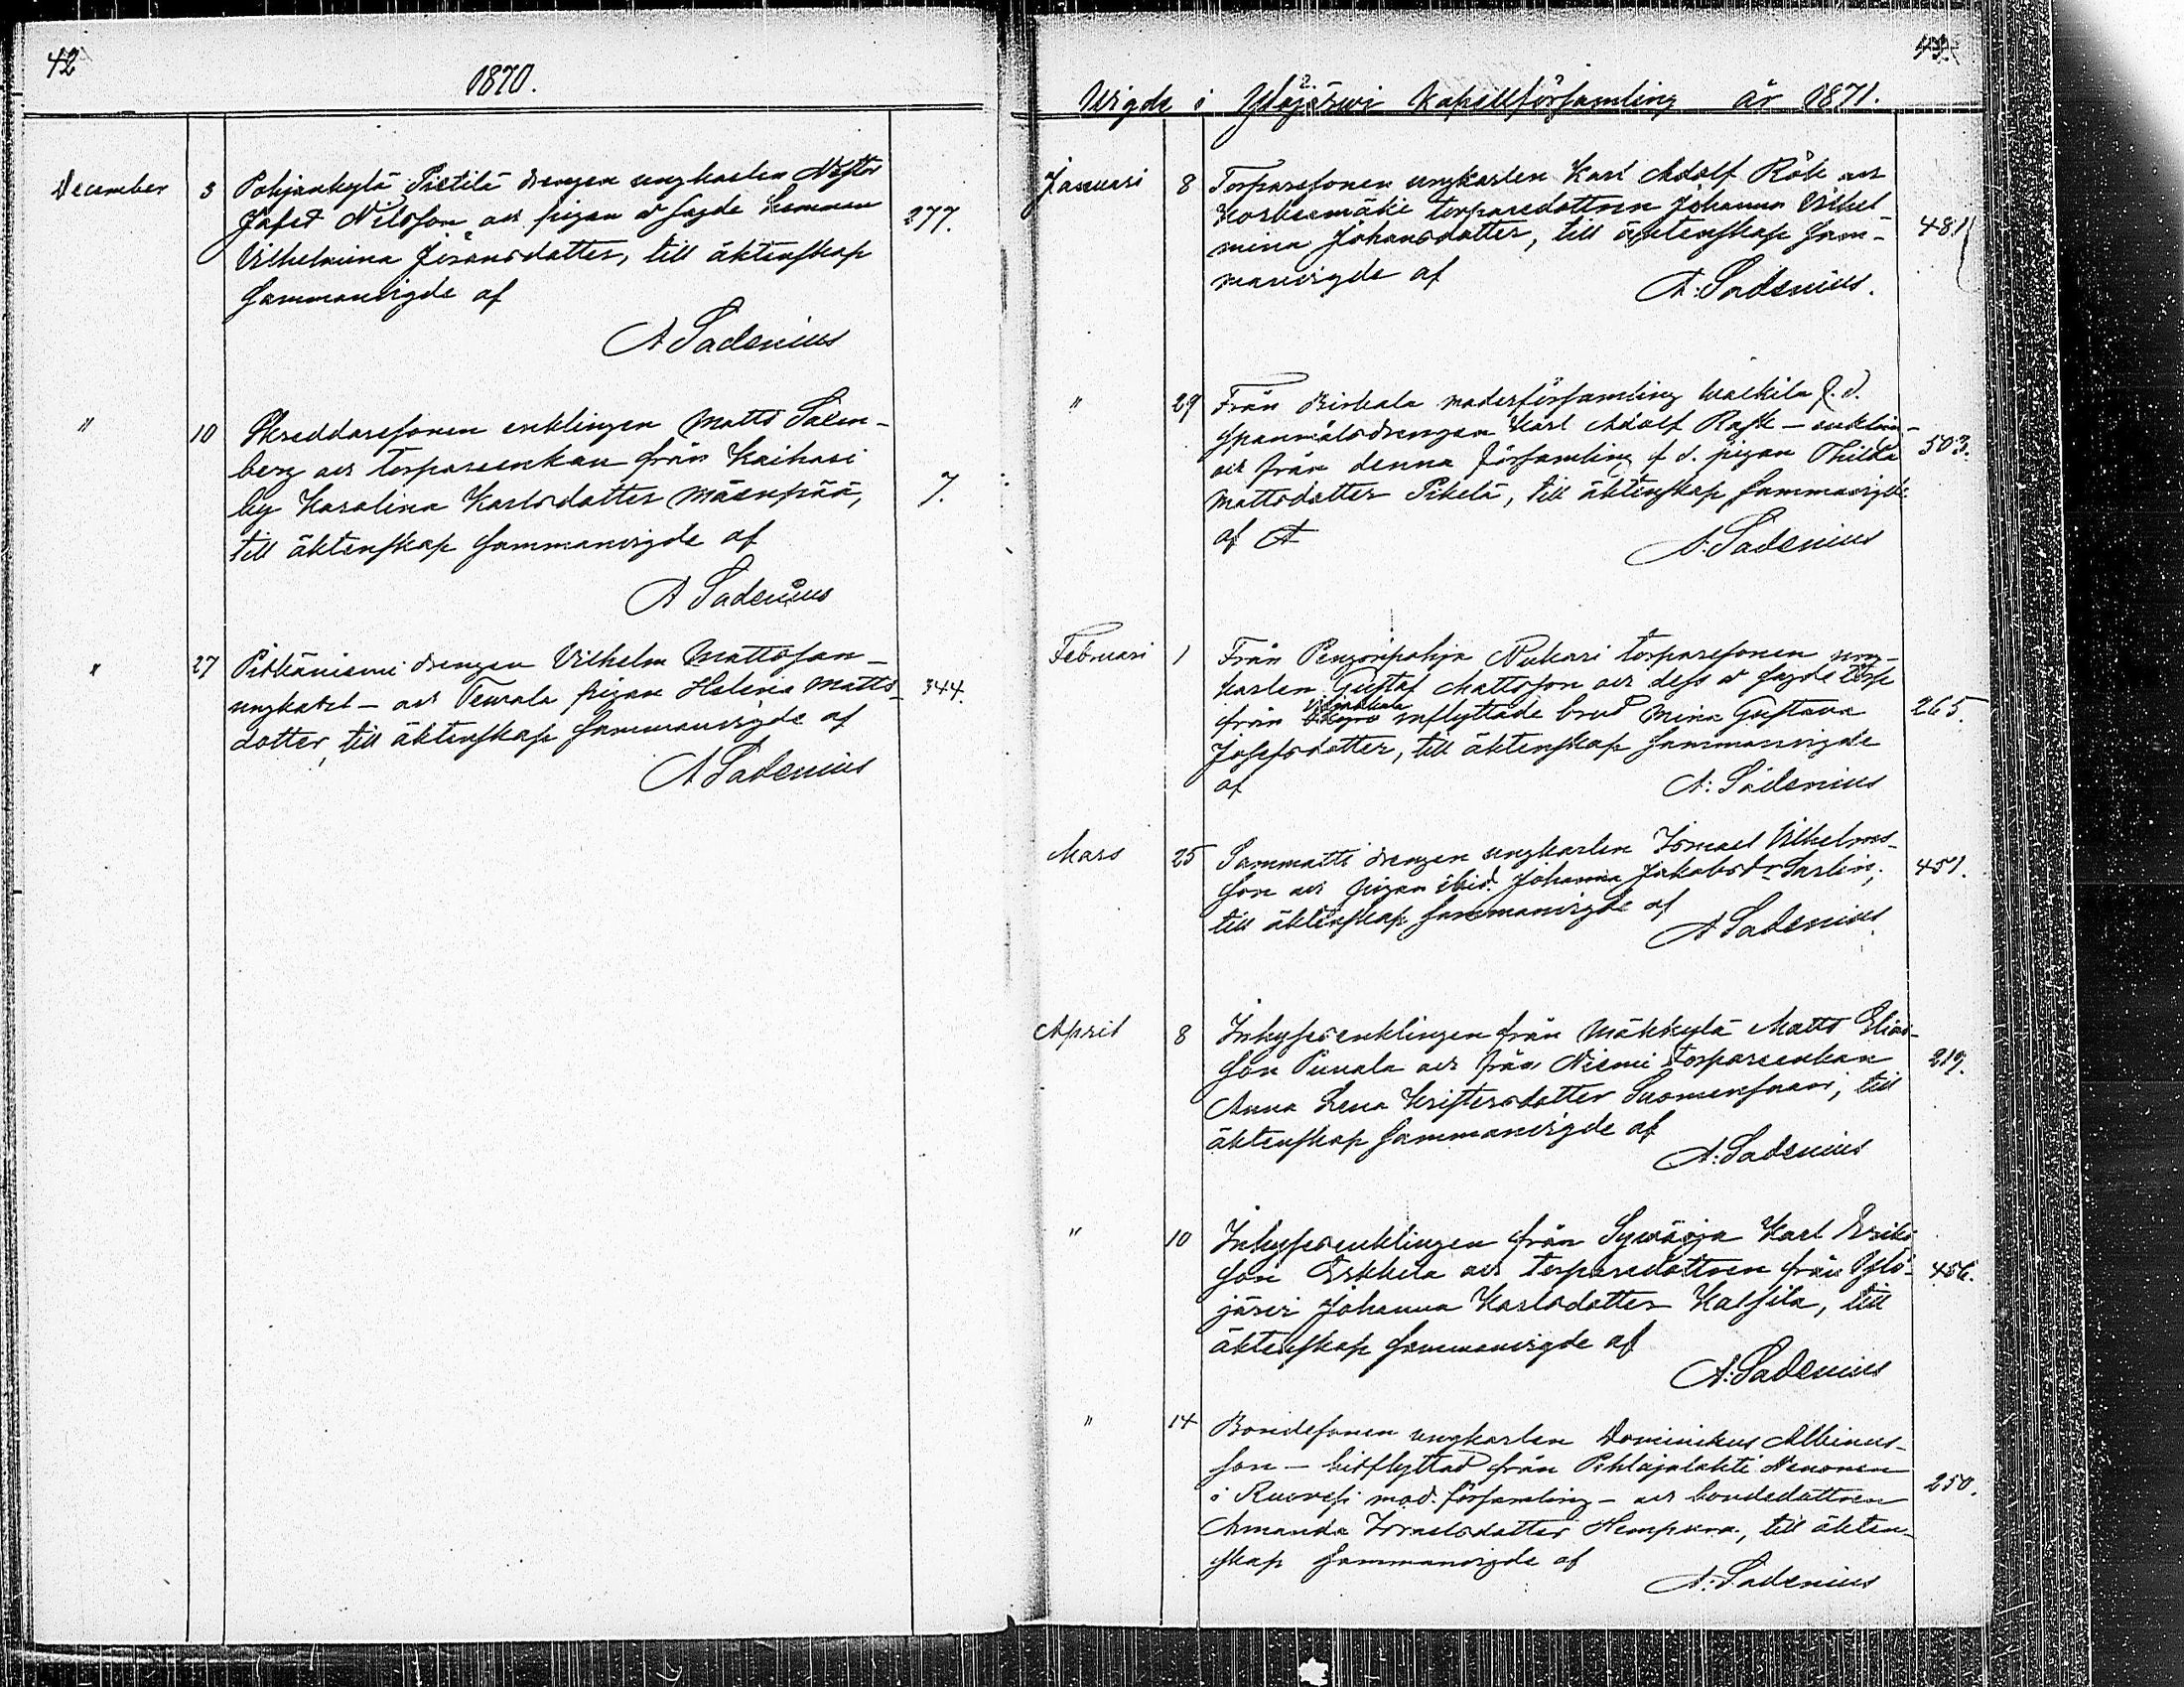 42
1870.
December 3 Pohjankylä Pietilä drengen ungkarlen Nestor
Jafet Nilsson och pigan v sagde hemman
277.
Vilhelmina Göransdotter, till äktenskap
sammanvigde af
A Sadenius
" 10 Skreddaresonen enklingen Matts Salen-
berg och torpareenkan från Kaihari
by Karolina Karlsdotter Mäenpää,
7.
till äktenskap sammanvigde af
A Sadenius
" 27 Pitkäniemi drengen Vilhelm Mattsson –
ungkarl – och Teivala pigan Helena Matts-
344.
dotter, till äktenskap sammanvigde af
A Sadenius
43.
Wigde i Ylöjärwi Kapellförsamling år 1871.
Januari 8 Torparesonen ungkarlen Karl Adolf Rök och
Korkeemäki torparedottren Johanna Vilhel-
481
mina Johansdotter, till äktenskap sam-
manvigde af
A. Sadenius.
" 29 Från Birkala moderförsamling Walkila f. d.
spanmålsdrengen Karl Adolf Rask – enkling –
och från denna församling f d. pigan Thilda
503.
Mattsdotter Pikelä, till äktenskap sammanvigde
af A
A. Sadenius
Februari 1 Från Pengonpohja Nukari torparesonen ung-
karlen Gustaf Mattsson och dess v sagde torp
från inflyttade brud Mina Gustava
265.
Josefsdotter, till äktenskap sammanvigde
af
A: Sadenius
Mars 25 Sammatti drengen ungkarlen Ismael Vilhelms-
son och pigan ibid. Johanna Jakobsdr Sarlin,
451.
till äktenskap sammanvigde af
A Sadenius
April 8 Inhysesenklingen från Mäkkylä Matts Elias-
son Punala och från Niemi torpareenkan
219.
Anna Lena Kristersdotter Suomensaari, till
äktenskap sammanvigde af
A. Sadenius
" 10 Inhysesenklingen från Sywäoja Karl Eriks-
son Erkkilä och torparedottren från Ylö-
456.
järvi Johanna Karlsdotter Kalsila, till
äktenskap sammanvigde af
A. Sadenius
" 14 Bondesonen ungkarlen Dominikus Albinus-
son – hitflyttad från Pihlajalahti Nenonen
i Ruovesi mod. församling – och bondedottren
250.
Amanda Israelsdotter Hempura, till äkten-
skap sammanvigde af
A. Sadenius